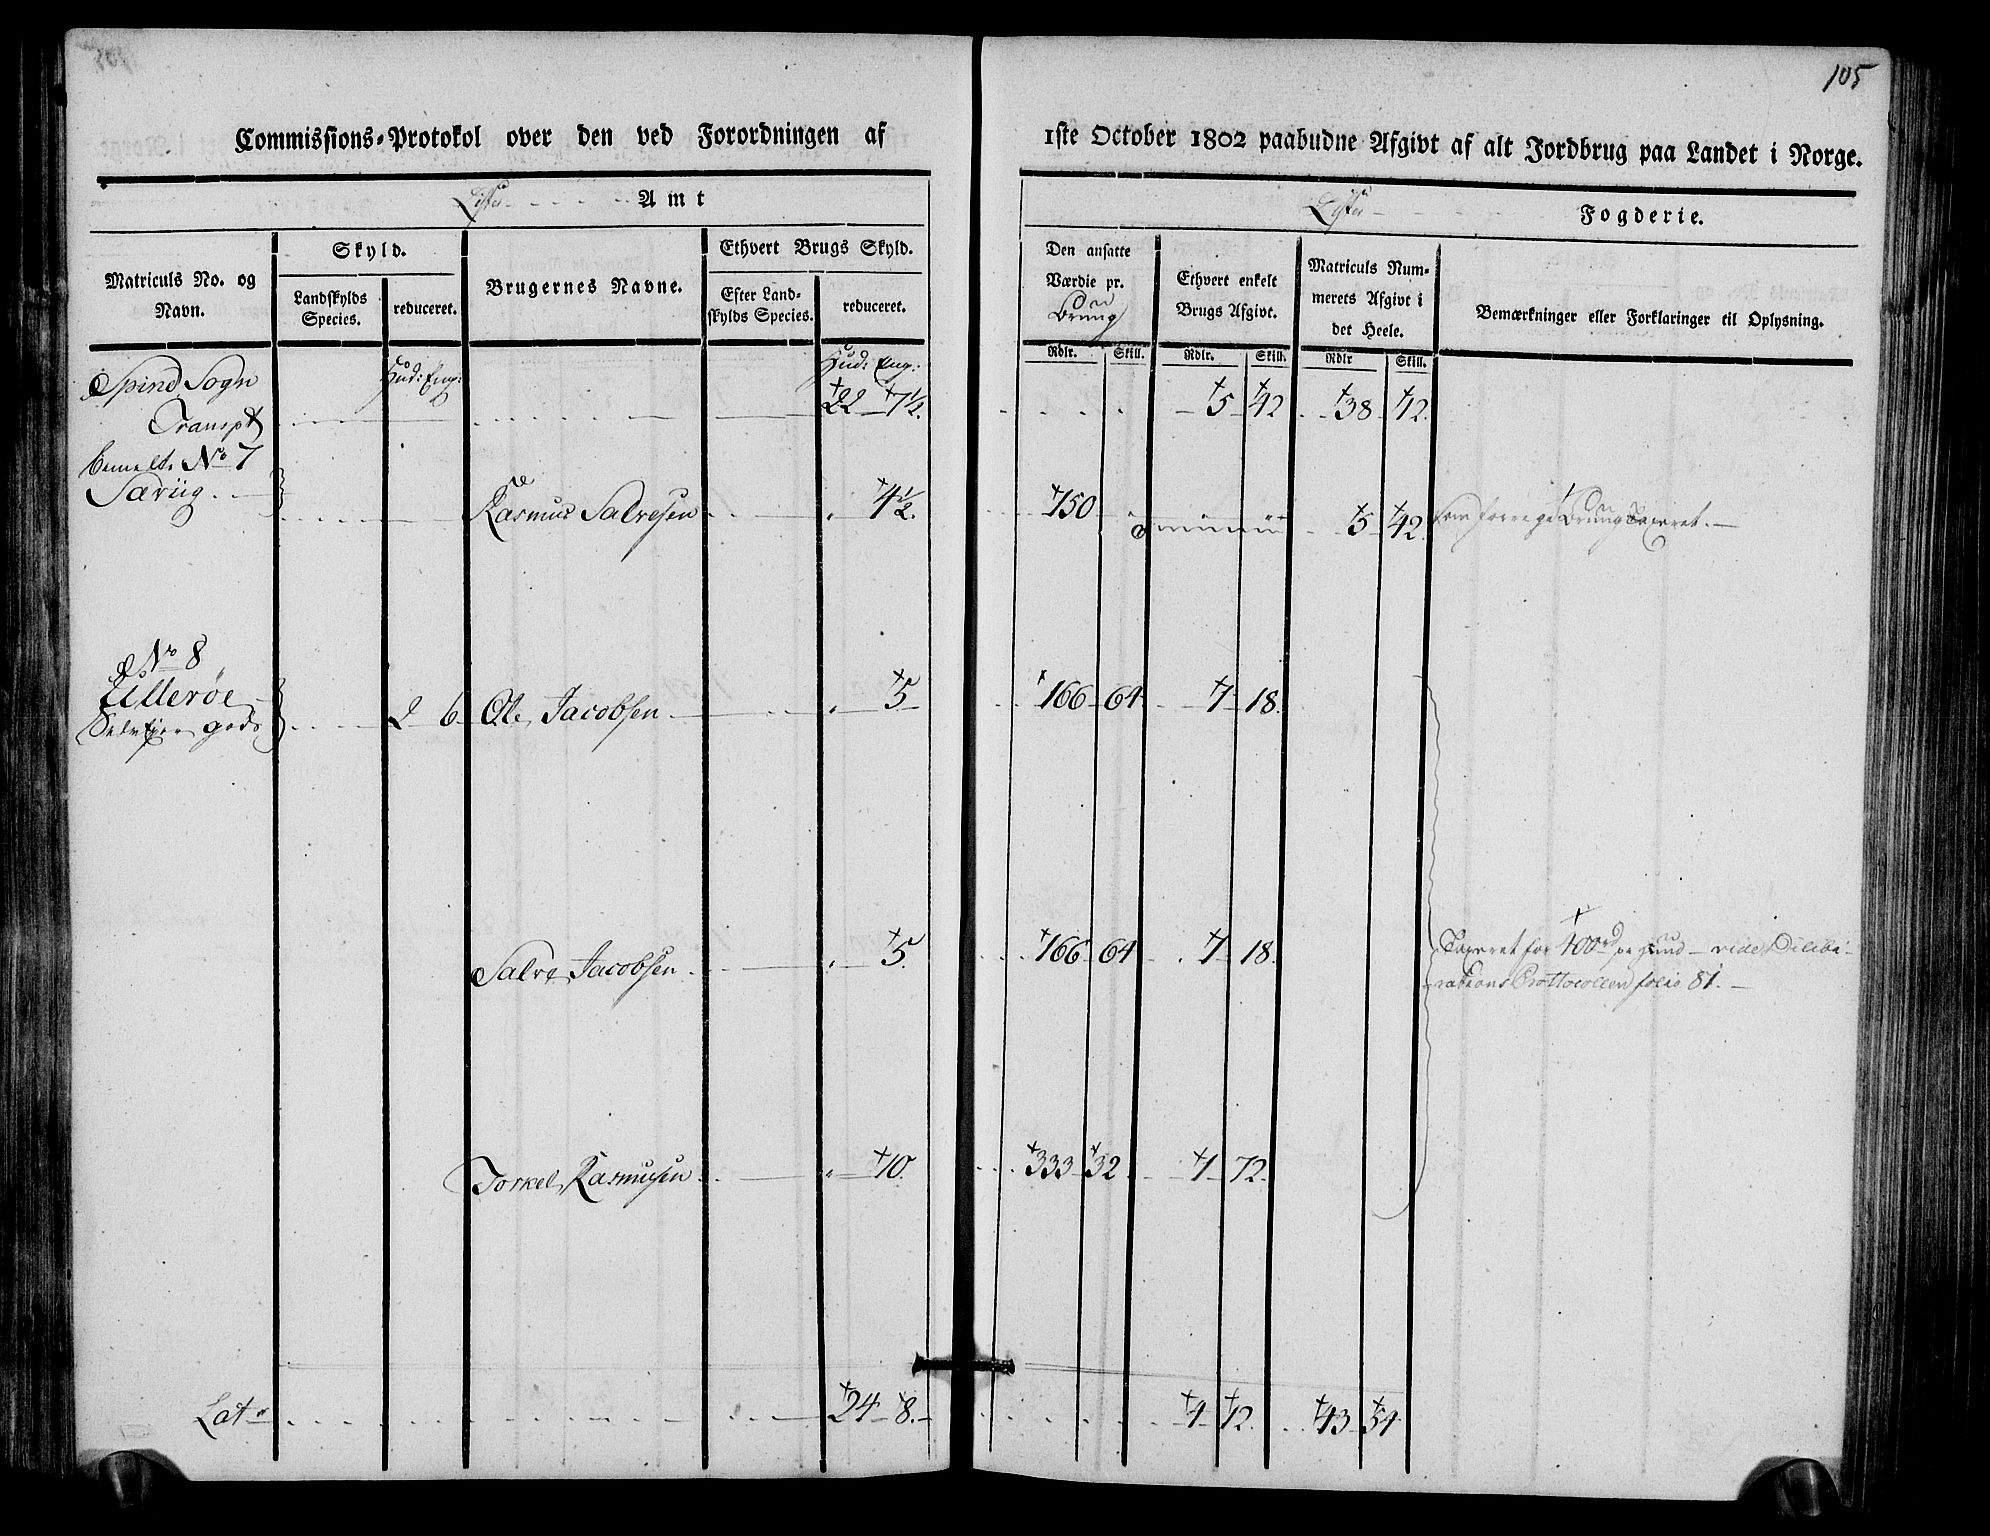 105
Commissions-Protokol over den ved Forordningen af 1ste October 1802 paabudne Afgivt af alt Jordbrug paa Landet i Norge.
Lister Amt Lister Fogderie.
Matriculs No. og Navn.
Skyld.
Landskylds Species.
reduceret.
Brugernes Navne.
Ethvert Brugs Skyld.
Efter Landskylds Species.
reduceret.
Den ansatte Værdie pr.
Ethvert enkelt Brugs Afgivt.
Matriculs Nummerets Afgivt i det Heele.
Bemærkninger eller Forklaringer til Oplysning.
Rdlr. Skill. Rdlr. Skill. Rdlr Skill.
Hud: Eng: Hud: Eng:
Spind Sogn
Transpt 22 7½ 5 42 38 12.
No 7
Særiig Rasmus Salvesen 4½ 150 5 42
No 8
Ullerøe 2 6 Ole Jacobsen 5 166 64 1 18
gods
Salve Jacobsen 5 166 64 1 18 Taxeret for 400rd pr Hud vide Delibe-
rations Prottocollen folio 81.
Torkel Rasmusen 10 333 32 1 72
Lat 24 8 4 12 43 54